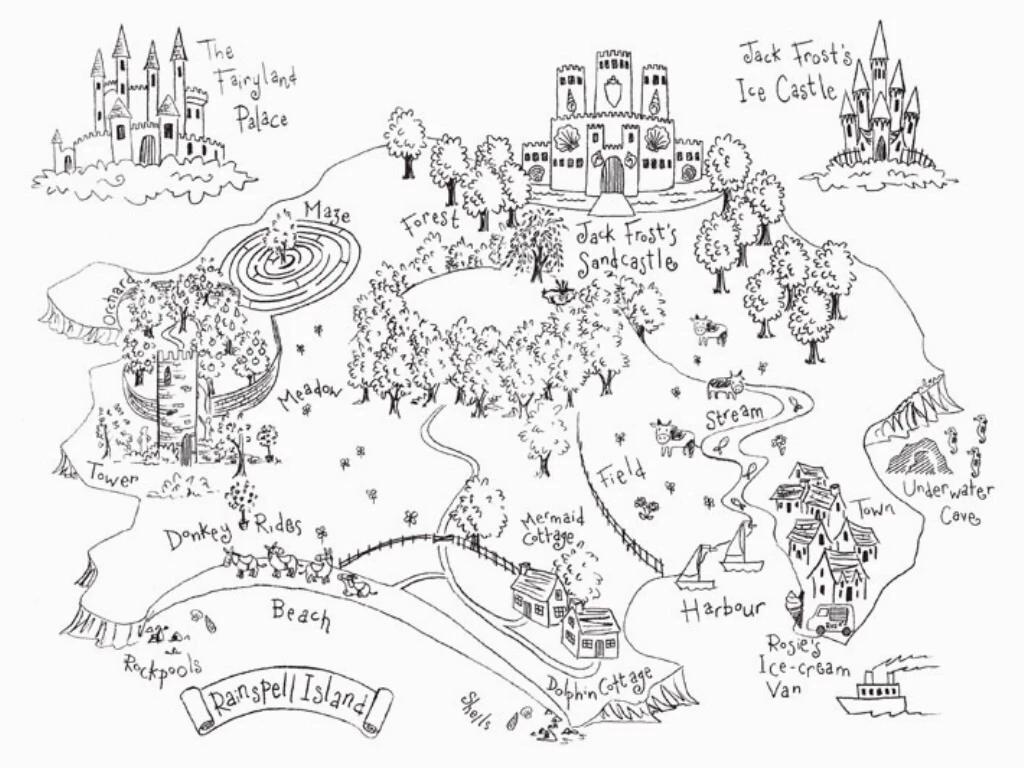 The
Fairyland
Palace
Jack Frost's
Ice Castle
Maze
Forest
Jack Frost's
Sandcastle
Orchard
Meadow
Stream
Tower
Field
Underwater
Cave
Town
Donkey Rides
Mermaid
Cottage
Beach
Harbour
Rockpools
Rosie's
Ice-cream
Van
Dolphin Cottage
Rainspell Island
Shells